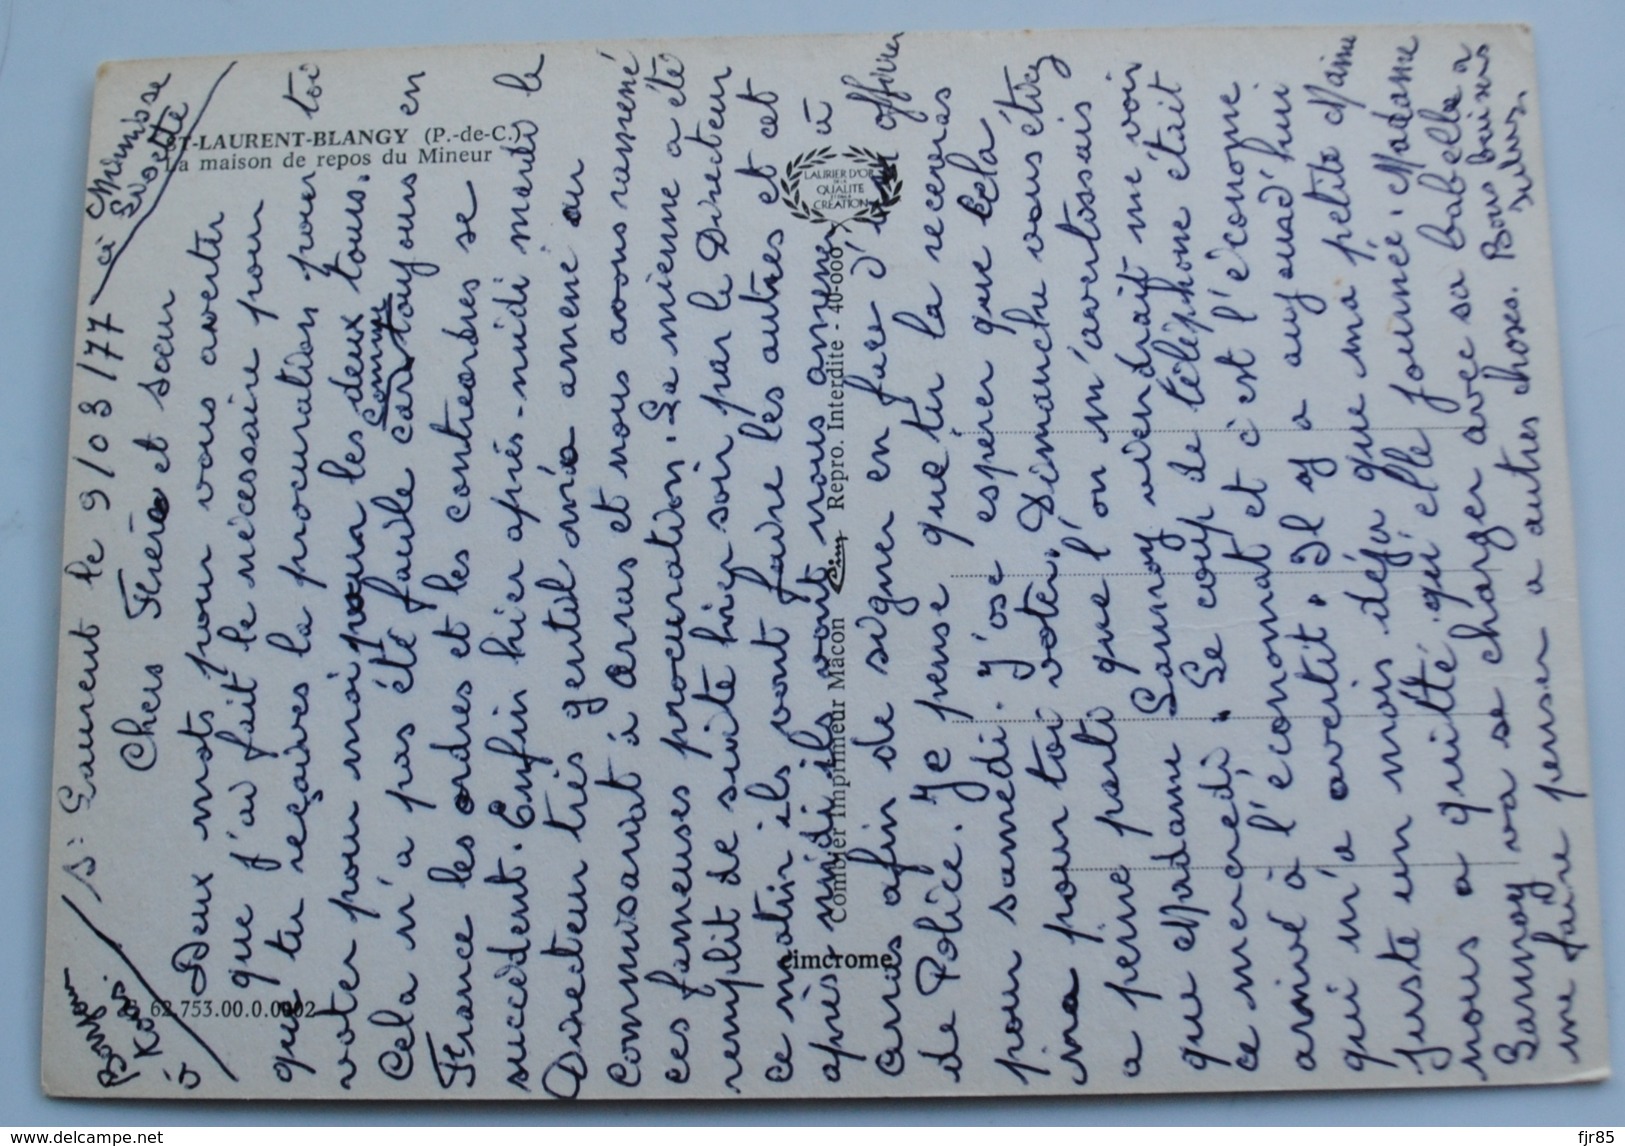 St Laurent le 9/03/77
Chers Frères et soeur
Deux mots pour vous avertir
que j'ai fait le nécessaire pour
que tu reçoives la procuration pour toi
voter pour moi pour les deux tours.
Cela n'a pas été facile car comme toujours en
France les ordres et les contreordres se
succèdent. Enfin hier après-midi mardi le
Directeur très gentil m'a amené au
Commissariat à Arras et nous avons ramené
ces fameuses procuration. La mienne a été
remplit de suite hier soir par le Directeur
ce matin ils vont faire les autres et cet
après midi ils vont nous amener à
Arras afin de signer en face d'un officier
de Police. Je pense que tu la receveras
pour samedi. J'ose espérer que cela
ira pour toi voter. Dimanche vous étiez
a peine parti que l'on m'avertissais
que Madame Lannoy viendrait me voir
ce mercredi. Le coup de téléphone était
arrivé à l'économat et c'est l'économe
qui m'a avertit. Il y a aujourd'hui
juste un mois déja que ma petite Mamie
nous a quitté qu'elle journée. Madame
Lannoy va se charger avec sa babelle a
me faire penser a autres choses. Bons baisers
Jules.
Bonjour
à Kois.
à Mimisse
Lisette
ST-LAURENT-BLANGY (P.-de-C.)
La maison de repos du Mineur
LAURIER D'OR
DE LA
QUALITE
ET DE LA
CREATION
Combier Imprimeur Macon Cim Repro. Interdite - 40-000
cimcrome
62.753.00.0.0002
www.delcampe.net
fjr85